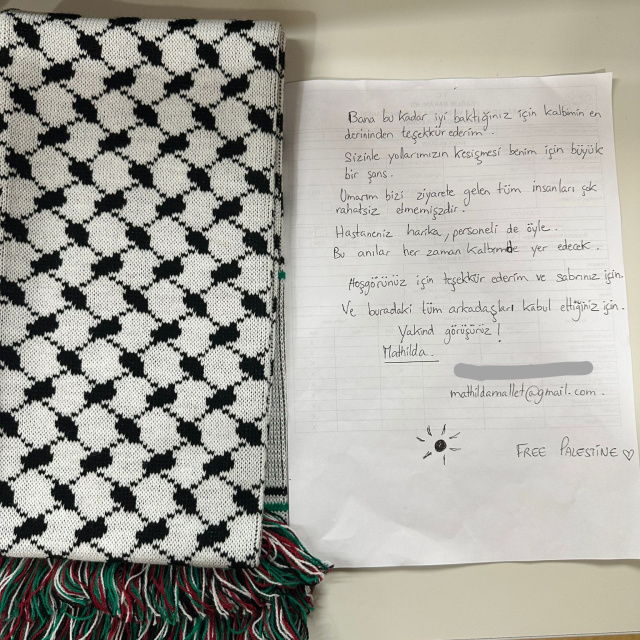 Bana bu kadar iyi baktığınız için kalbimin en
derininden teşekkür ederim.
Sizinle yollarımızın kesişmesi benim için büyük
bir şans.
Umarım bizi ziyarete gelen tüm insanları çok
rahatsız etmemişzdir.
Hastaneniz harika, personeli de öyle.
Bu anılar her zaman kalbimde yer edecek.
Hoşgörünüz için teşekkür ederim ve sabrınız için.
Ve buradaki tüm arkadaşları kabul ettiğiniz için.
Yakınd görüşürüz!
Mathilda.
mathildamallet@gmail.com.
FREE PALESTINE ♡